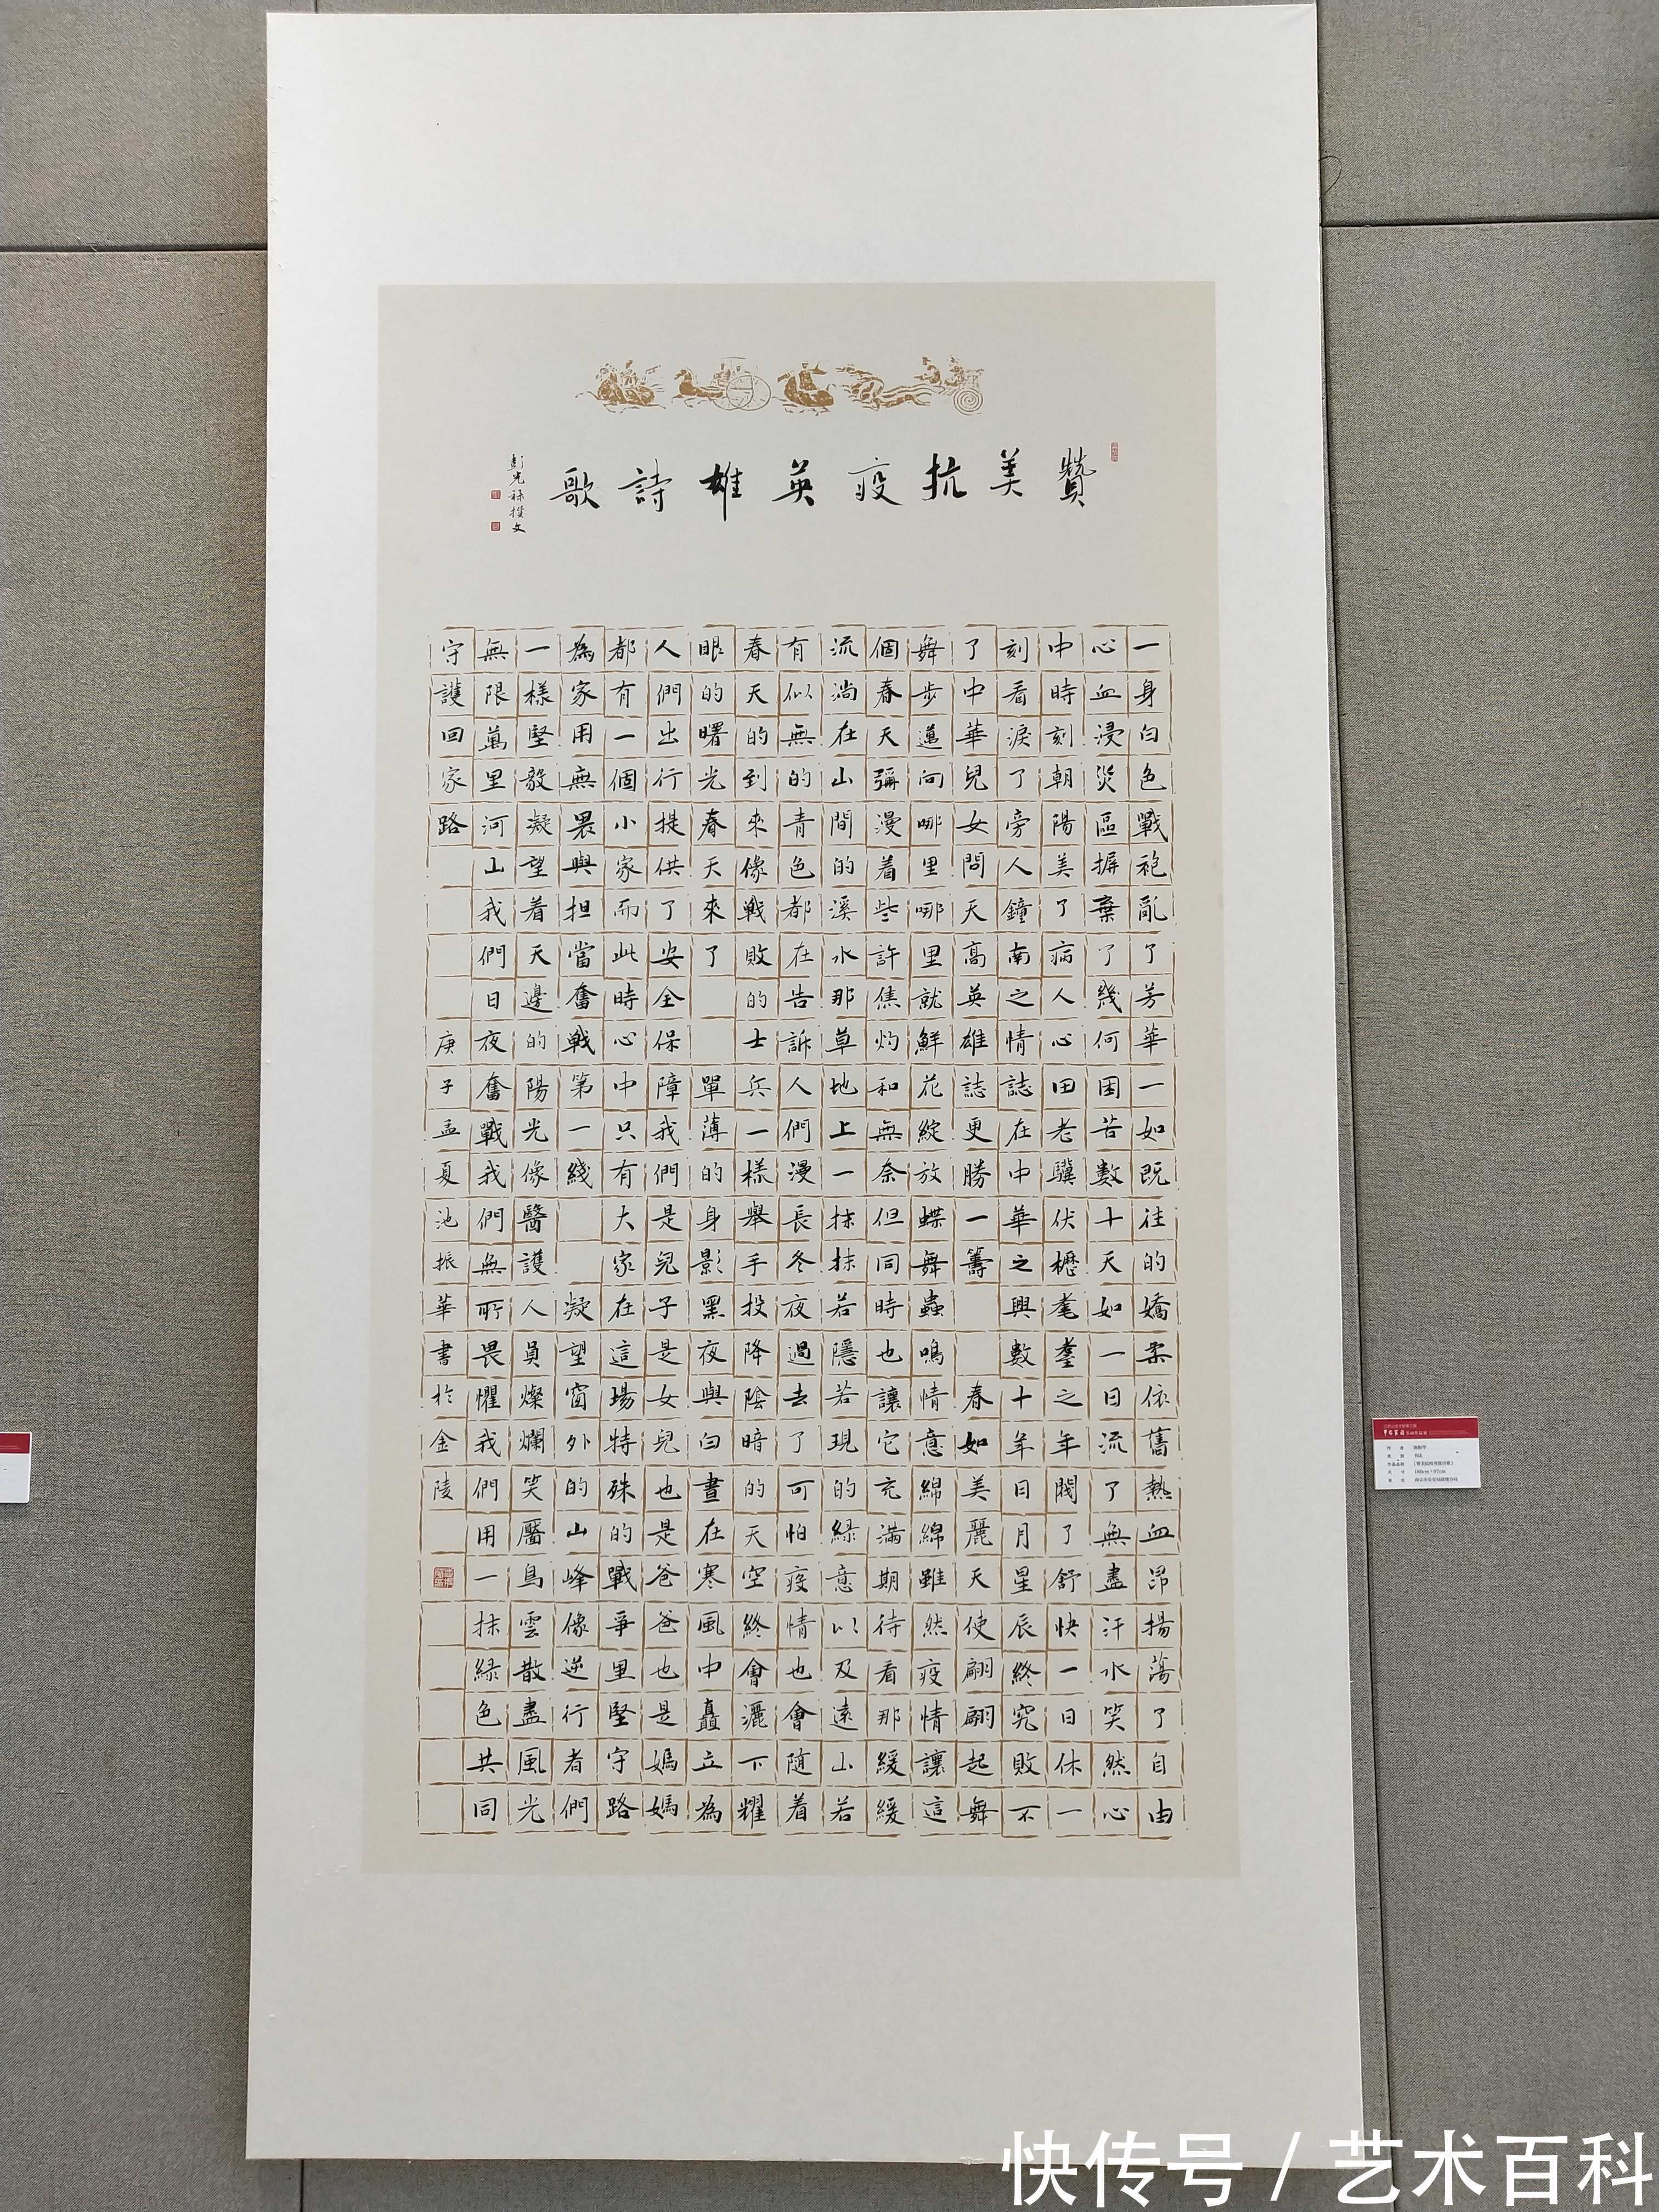 贊美抗疫英雄詩歌
彭光祿撰文
一身白色戰袍亂了芳華一如既往的嬌柔依舊熱血昂揚蕩了自由
心血浸災區摒棄了幾何困苦數十天如一日流了無盡汗水笑然心
中時刻朝陽美了病人心田老驥伏櫪耄耋之年閥了舒快一日休一
刻看淚了旁人鐘南之情誌在中華之興數十年日月星辰終究敗不
了中華兒女問天高英雄誌更勝一籌 春如美麗天使翩翩起舞
舞步邁向哪里哪里就鮮花綻放蝶舞蟲鳴情意綿綿雖然疫情讓這
個春天彌漫着些許焦灼和無奈但同時也讓它充滿期待看那緩緩
流淌在山間的溪水那草地上一抹抹若隱若現的綠意以及遠山若
有似無的青色都在告訴人們漫長冬夜過去了可怕疫情也會隨着
春天的到來像戰敗的士兵一樣舉手投降陰暗的天空終會灑下耀
眼的曙光春天來了 單薄的身影黑夜與白晝在寒風中矗立為
人們出行提供了安全保障我們是兒子是女兒也是爸爸也是媽媽
都有一個小家而此時心中只有大家在這場特殊的戰爭里堅守路
為家用無畏與担當奮戰第一綫 凝望窗外的山峰像逆行者們
一樣堅毅凝望着天邊的陽光像醫護人員燦爛笑靨烏雲散盡風光
無限萬里河山我們日夜奮戰我們無所畏懼我們用一抹綠色共同
守護回家路 庚子孟夏池振華書於金陵
180cm×97cm
快传号 / 艺术百科